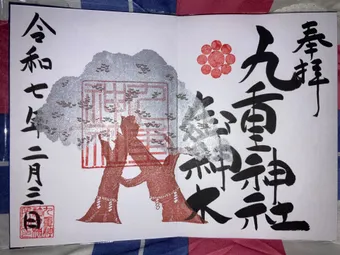 奉拝
九重神社
御神木
令和七年二月三日